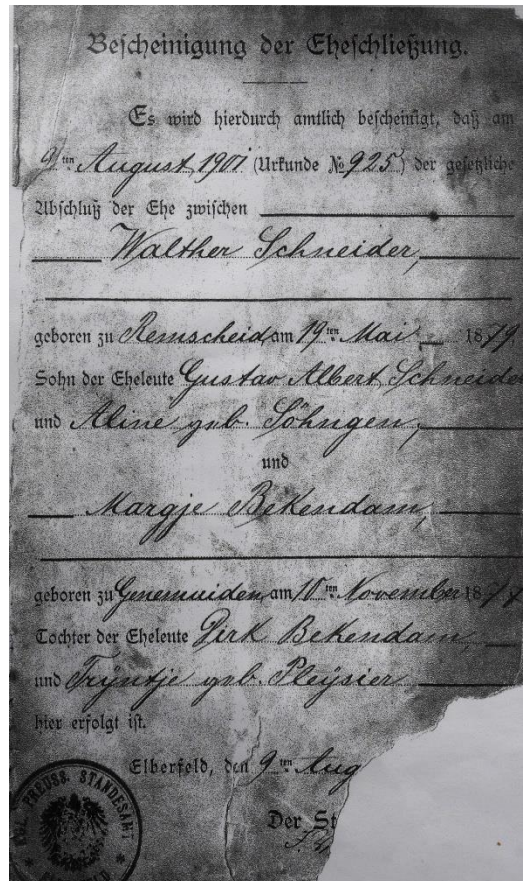 Bescheinigung der Eheschließung.
Es wird hierdurch amtlich bescheinigt, daß am
9ten August 1901 (Urkunde No 925) der gesetzliche
Abschluß der Ehe zwischen
Walther Schneider,
geboren zu Remscheid, am 19ten Mai 1879
Sohn der Eheleute Gustav Albert Schneider
und Aline geb. Söhngen,
und
Margje Bekendam,
geboren zu Genemuiden, am 10ten November 18
Tochter der Eheleute Dirk Bekendam,
und Trÿntje geb. Pleÿsier
hier erfolgt ist.
Elberfeld, den 9ten Aug
Der St
KGL. PREUSS. STANDESAMT